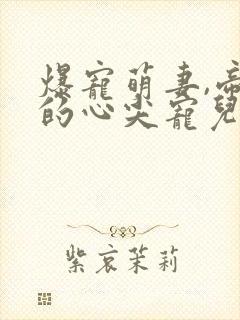 爆寵萌妻,帝
的心尖寵兒
紫哀茉莉